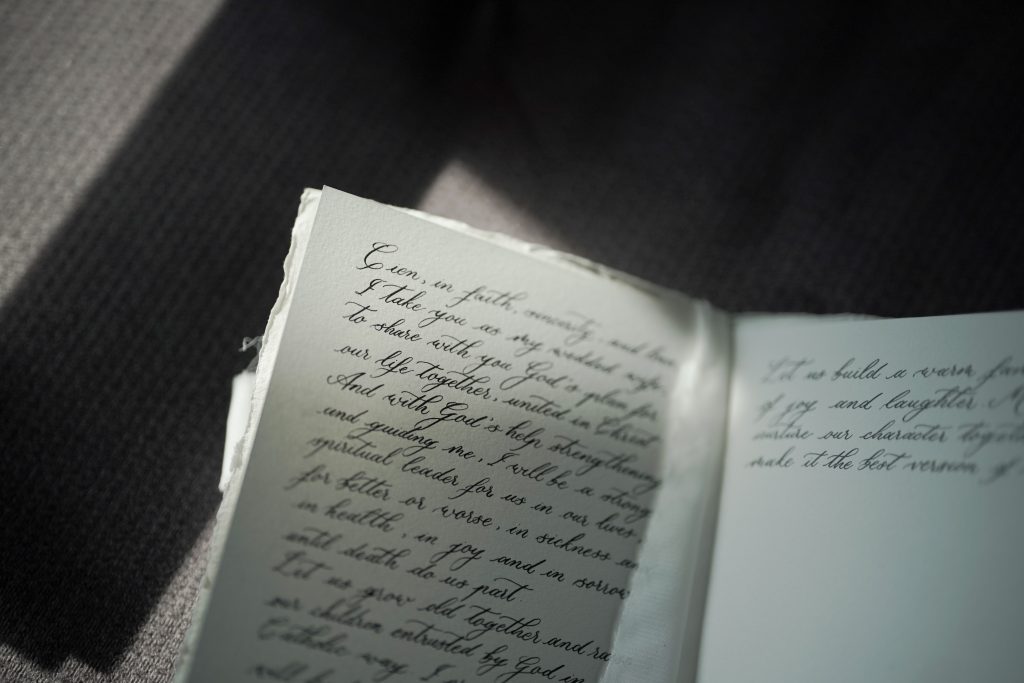 Cien, in faith, sincerity, and love
I take you as my wedded wife
to share with you God's plan for
our life together, united in Christ
And with God's help strengthening
and guiding me, I will be a strong
spiritual leader for us in our lives,
for better or worse, in sickness
in health, in joy and in sorrow
until death do us part
Let us grow old together and
our children entrusted by God in
Catholic way. I
will be
Let us build a warm
of joy and laughter
nurture our character
make it the best version of